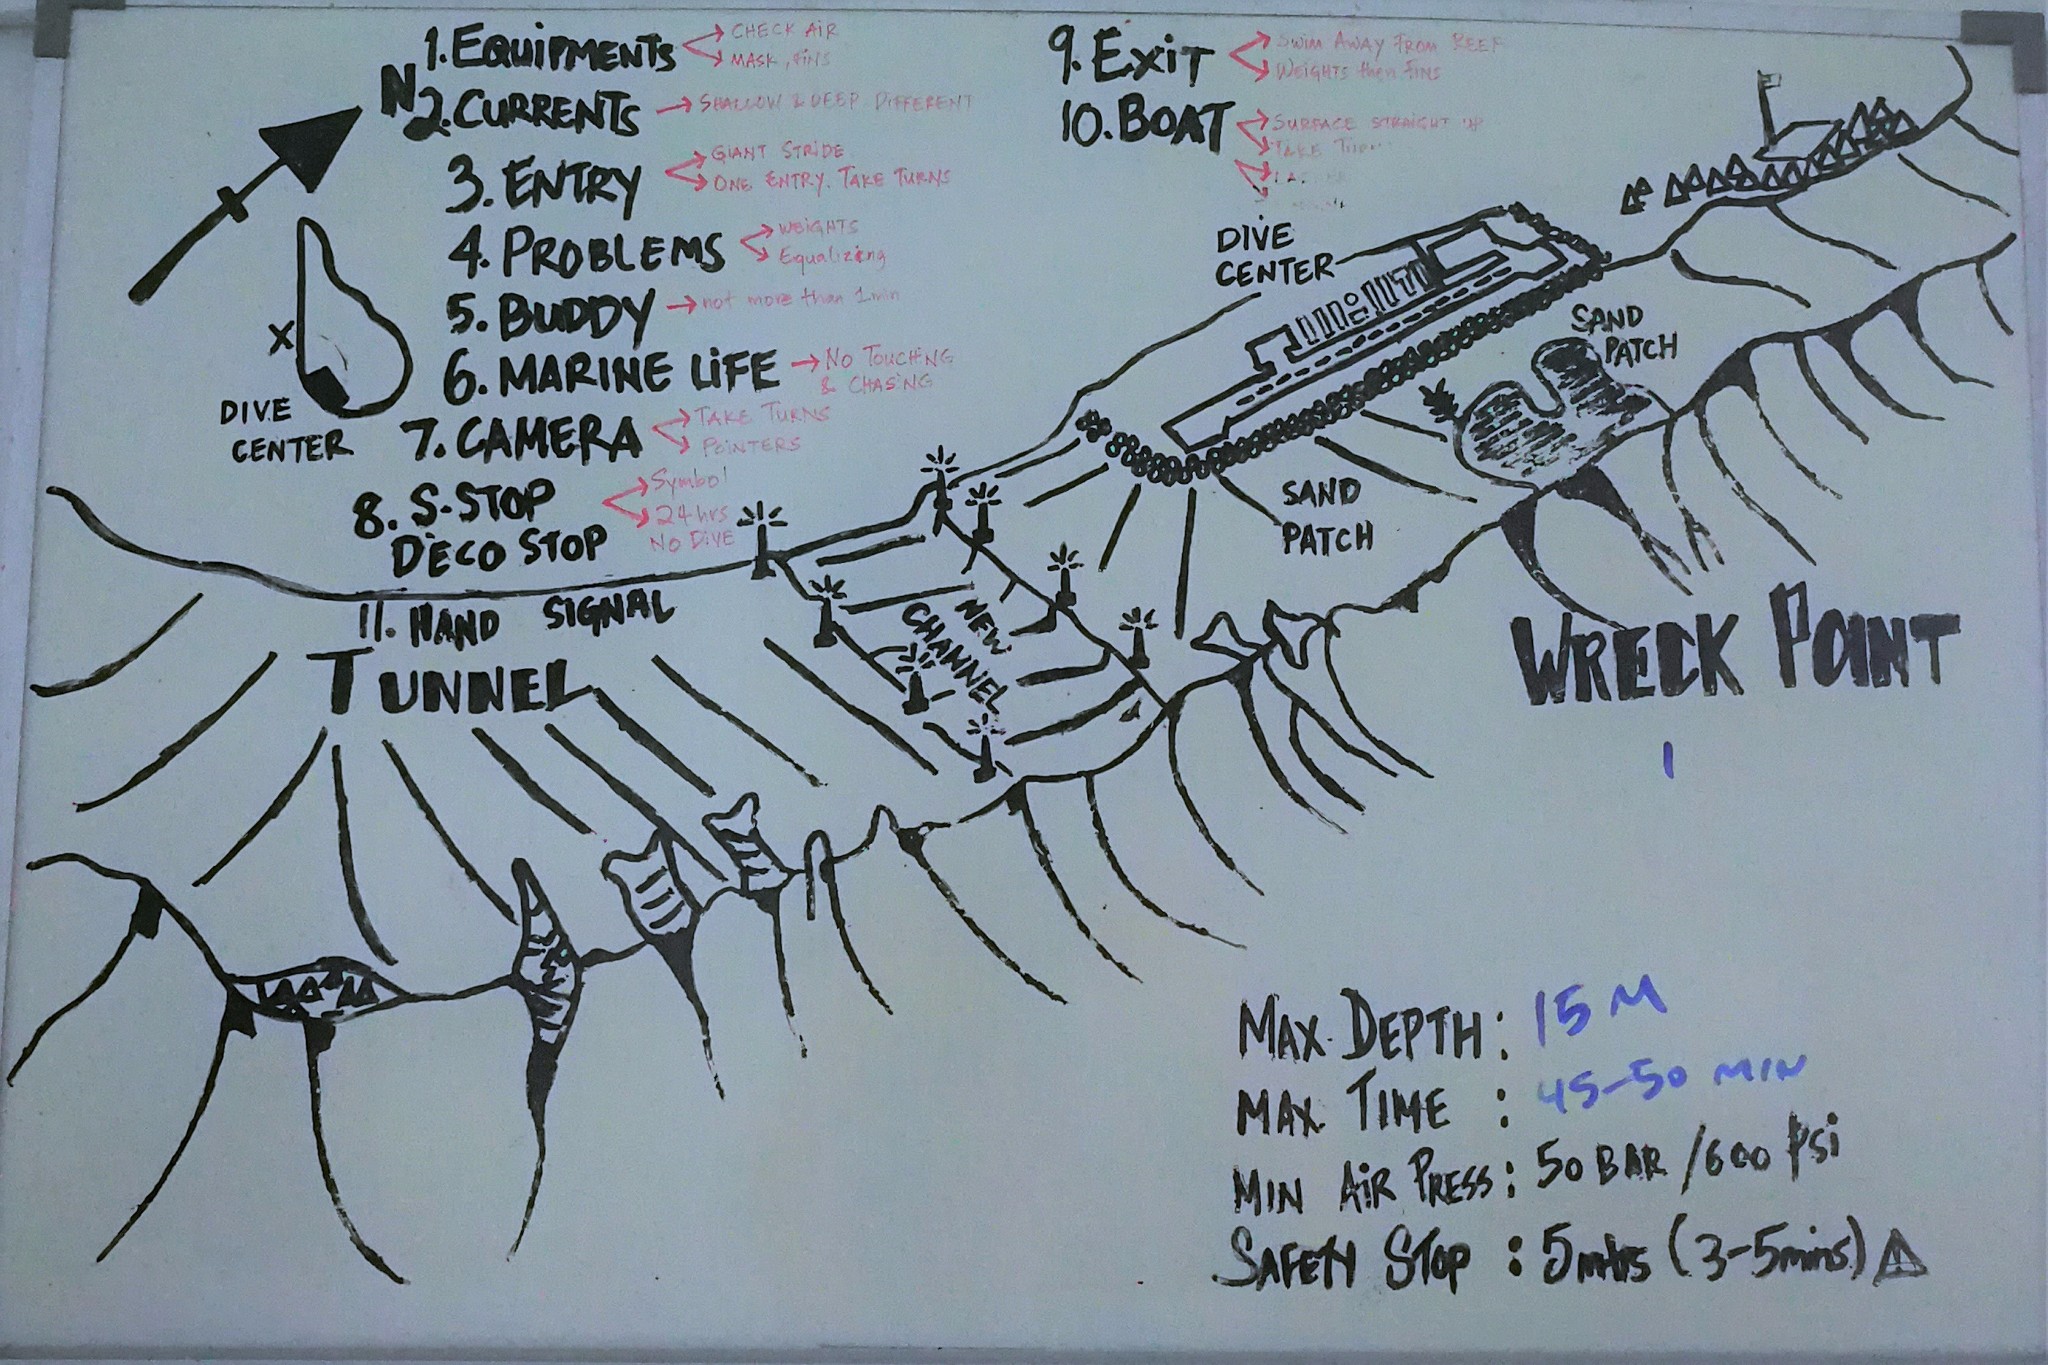 1. EQUIPMENTS
CHECK AIR
MASK, FINS
N
2. CURRENTS
SHALLOW & DEEP DIFFERENT
3. ENTRY
GIANT STRIDE
ONE ENTRY. TAKE TURNS
4. PROBLEMS
WEIGHTS
Equalizing
5. BUDDY
not more than 1 min
6. MARINE LIFE
NO TOUCHING
& CHASING
7. CAMERA
TAKE TURNS
POINTERS
8. S-STOP
DECO STOP
Symbol
24 hrs
NO DIVE
9. EXIT
SWIM AWAY FROM REEF
WEIGHTS then FINS
10. BOAT
SURFACE STRAIGHT UP
TAKE
11. HAND SIGNAL
TUNNEL
X
DIVE
CENTER
DIVE
CENTER
SAND
PATCH
SAND
PATCH
NEW
CHANNEL
WRECK POINT
1
MAX. DEPTH: 15 M
MAX. TIME : 45-50 MIN
MIN AIR PRESS: 50 BAR /600 PSi
SAFETY STOP : 5mtrs (3-5mins)